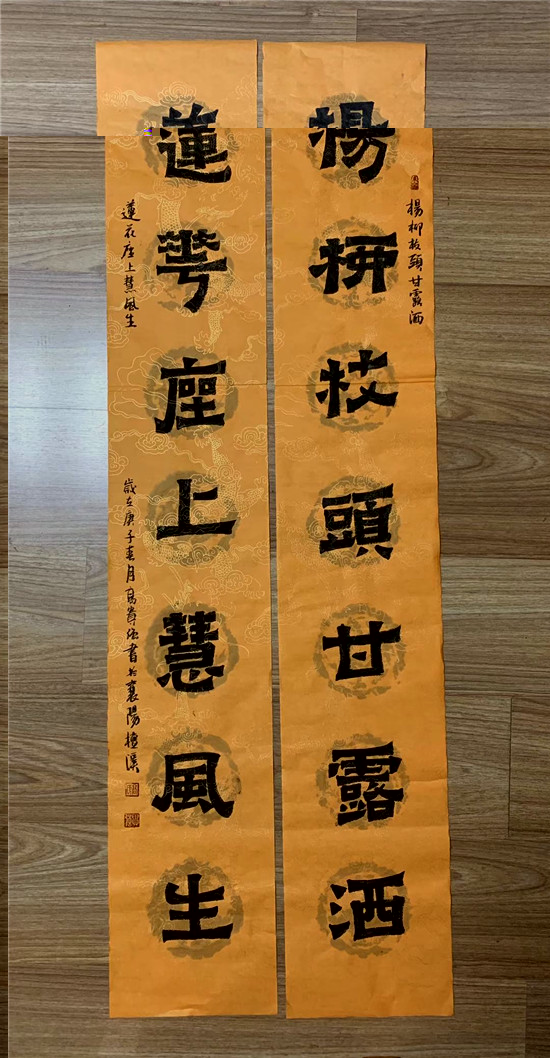 楊柳枝頭甘露洒
楊柳枝頭甘露洒
蓮花座上慧風生
蓮華座上慧風生
歲在庚子春月高尊波書於襄陽檀溪